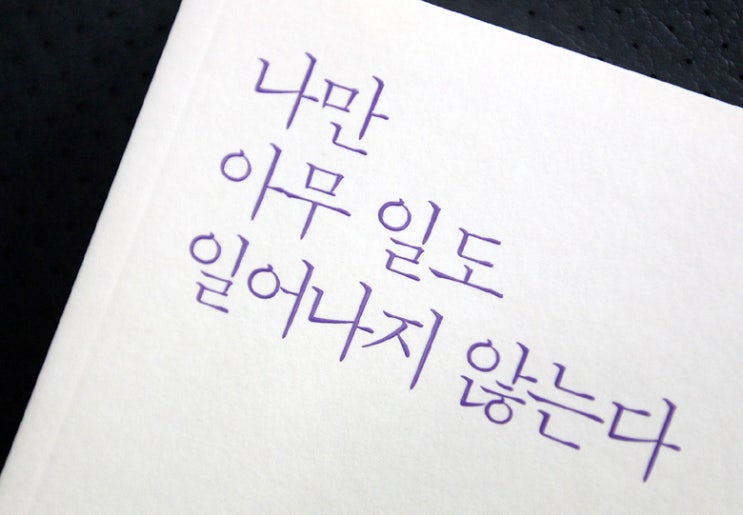 나만
아무 일도
일어나지 않는다